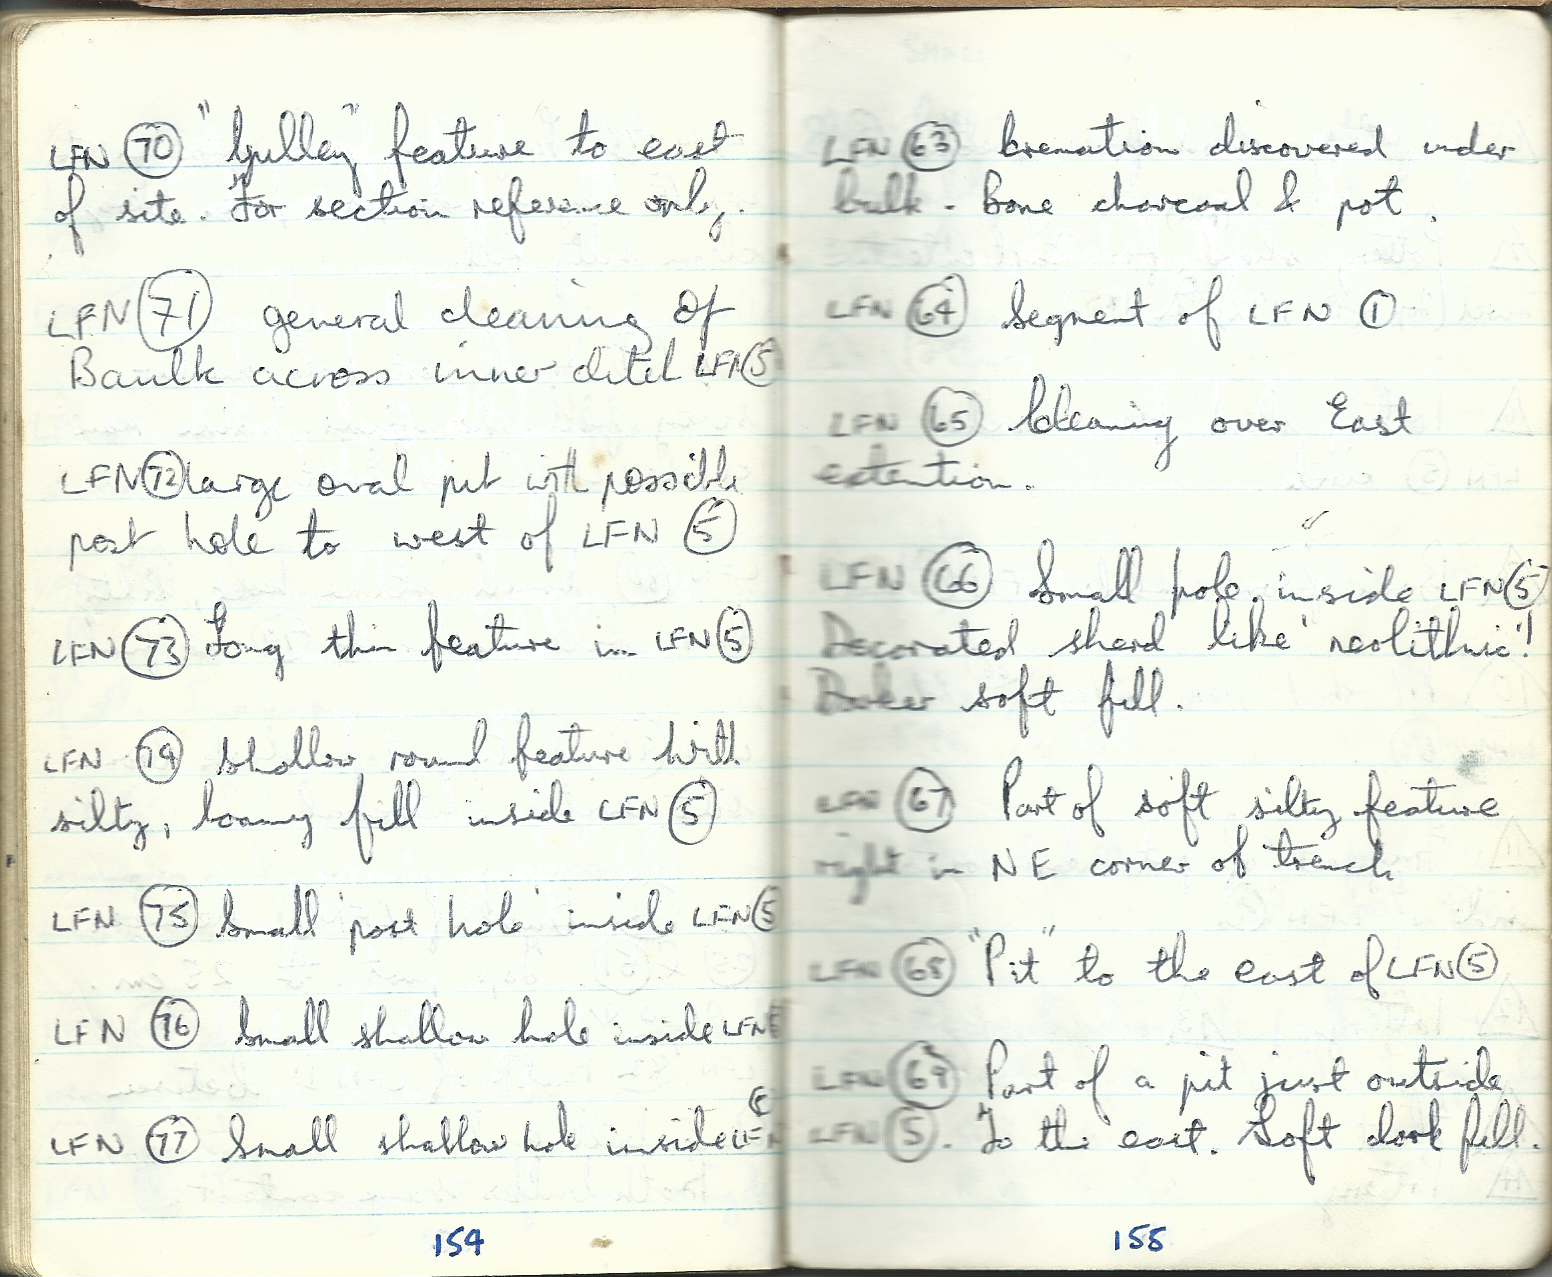 LFN 70 "Gulley" feature to east
of site. For section reference only.
LFN 71 general cleaning of
Baulk across inner ditch LFN 5
LFN 72 large oval pit with possible
post hole to west of LFN 5
LFN 73 Long thin feature in LFN 5
LFN 74 Shallow round feature with
silty, loamy fill inside LFN 5
LFN 75 Small 'post hole' inside LFN 5
LFN 76 Small shallow hole inside LFN 5
LFN 77 Small shallow hole inside LFN 5
154
LFN 63 Cremation discovered under
bulk - Bone charcoal & pot.
LFN 64 Segment of LFN 1
LFN 65 Cleaning over East
extention.
LFN 66 Small hole inside LFN 5
Decorated sherd like 'neolithic'!
Darker soft fill.
LFN 67 Part of soft silty feature
right in NE corner of trench
LFN 68 "Pit" to the east of LFN 5
LFN 69 Part of a pit just outside
LFN 5. To the east. Soft dark fill.
155